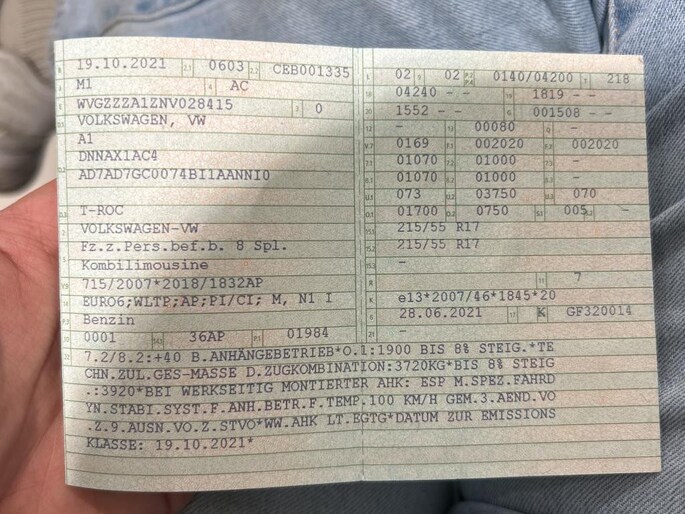 19.10.2021 0603 CEB001335
M1 AC
WVGZZZA1ZNV028415 0
VOLKSWAGEN, VW
A1
DNNAX1AC4
AD7AD7GC0074BI1AANNI0
T-ROC
VOLKSWAGEN-VW
Fz.z.Pers.bef.b. 8 Spl.
Kombilimousine
715/2007*2018/1832AP
EURO6;WLTP;AP;PI/CI; M, N1 I
Benzin
0001 36AP 01984
02 02 0140/04200 218
04240 - - 1819 - -
1552 - - 001508 - -
- 00080 -
0169 002020 002020
01070 01000 -
01070 01000 -
073 03750 070
01700 0750 005 -
215/55 R17
215/55 R17
-
7
e13*2007/46*1845*20
28.06.2021 K GF320014
-
7.2/8.2:+40 B.ANHÄNGEBETRIEB*O.1:1900 BIS 8% STEIG.*TE
CHN.ZUL.GES-MASSE D.ZUGKOMBINATION:3720KG*BIS 8% STEIG
.:3920*BEI WERKSEITIG MONTIERTER AHK: ESP M.SPEZ.FAHRD
YN.STABI.SYST.F.ANH.BETR.F.TEMP.100 KM/H GEM.3.AEND.VO
.Z.9.AUSN.VO.Z.STVO*WW.AHK LT.EGTG*DATUM ZUR EMISSIONS
KLASSE: 19.10.2021*